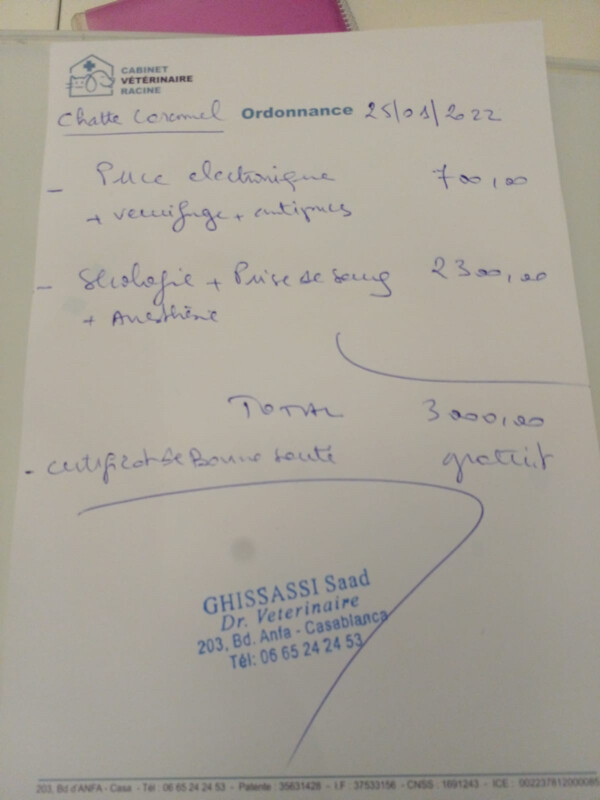 CABINET
VÉTÉRINAIRE
RACINE
Chatte Caramel Ordonnance 25/01/2022
- Puce electronique 700,00
+ vermifuge + antipuces
- Sérologie + Prise de sang 2300,00
+ Anesthésie
TOTAL 3000,00
- certificat de Bonne santé gratuit
GHISSASSI Saad
Dr. Veterinaire
203, Bd. Anfa - Casablanca
Tél: 06 65 24 24 53
203, Bd d'ANFA - Casa - Tél : 06 65 24 24 53 - Patente : 35631428 - I.F : 37533156 - CNSS : 1891243 - ICE : 002237812000085